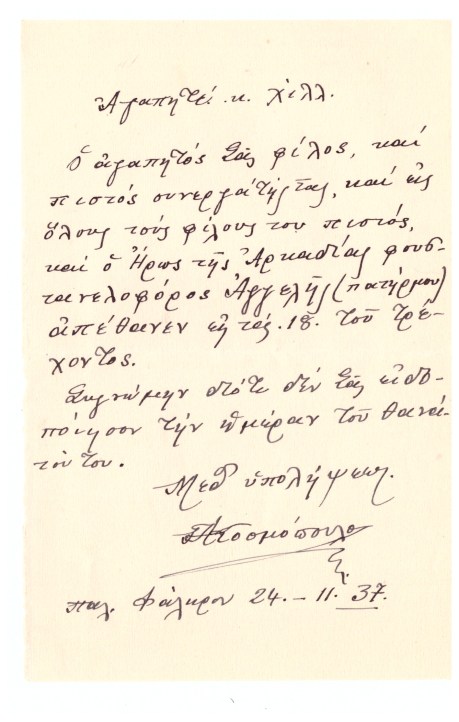 Ἀγαπητέ. κ. χίλλ.
Ὁ ἀγαπητός Σᾶς φίλος, καί
πιστός συνεργάτης Σας, καί εἰς
ὅλους τούς φίλους του πιστός,
καί ὁ Ἥρως τῆς Ἀρκαδίας φουσ-
τανελοφόρος Ἀγγελῆς (πατήρ μου)
ἀπέθανεν εἰς τάς. 18. τοῦ τρέ-
χοντος.
Συγνώμην διότι δέν Σᾶς εἰδο-
ποίησον τήν ἡμέραν τοῦ θανά-
του του.
Μεθ' ὑπολήψεως.
παλ. Φάληρον 24.-11.37.